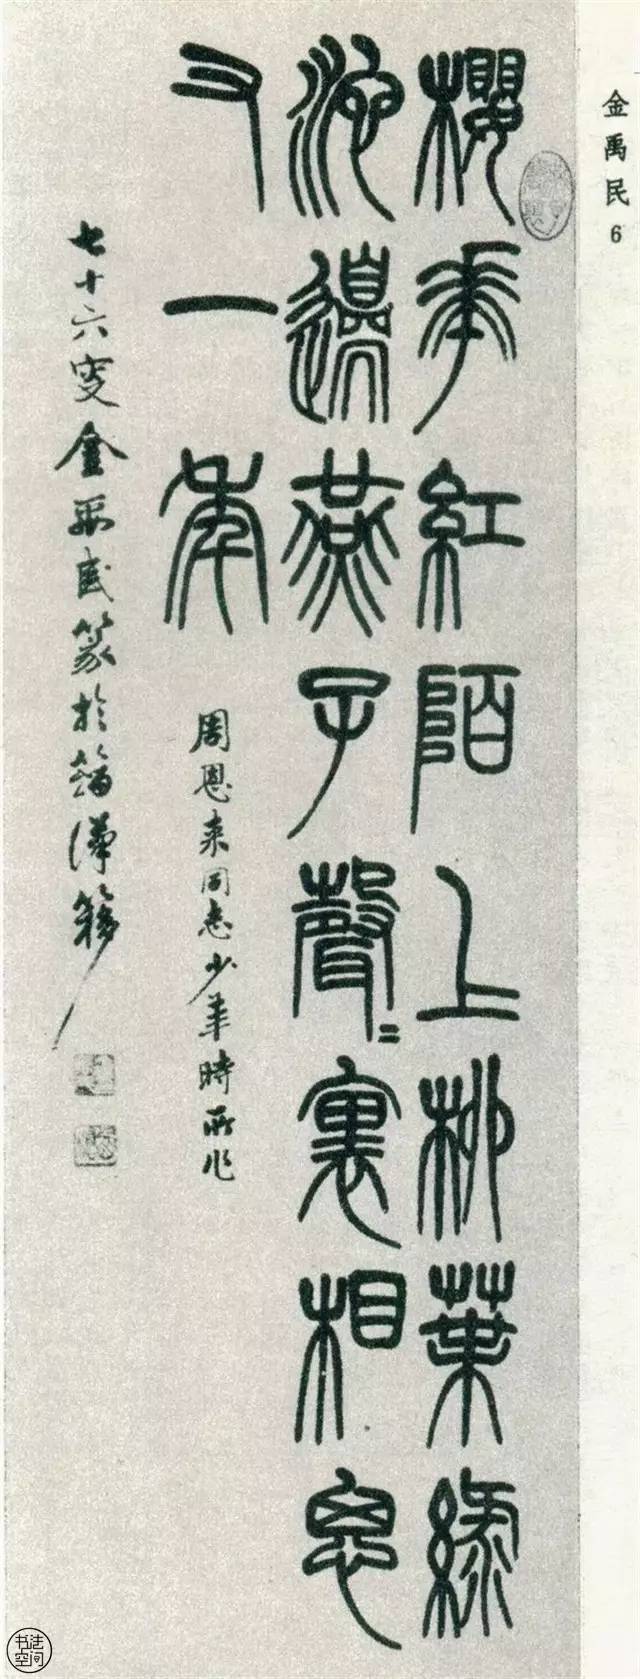 金禹民 6
櫻花紅陌上柳葉綠
池邊燕子聲〻裏相思
又一年
周恩来同志少年時所作
七十六叟金禹民篆於
书法空间